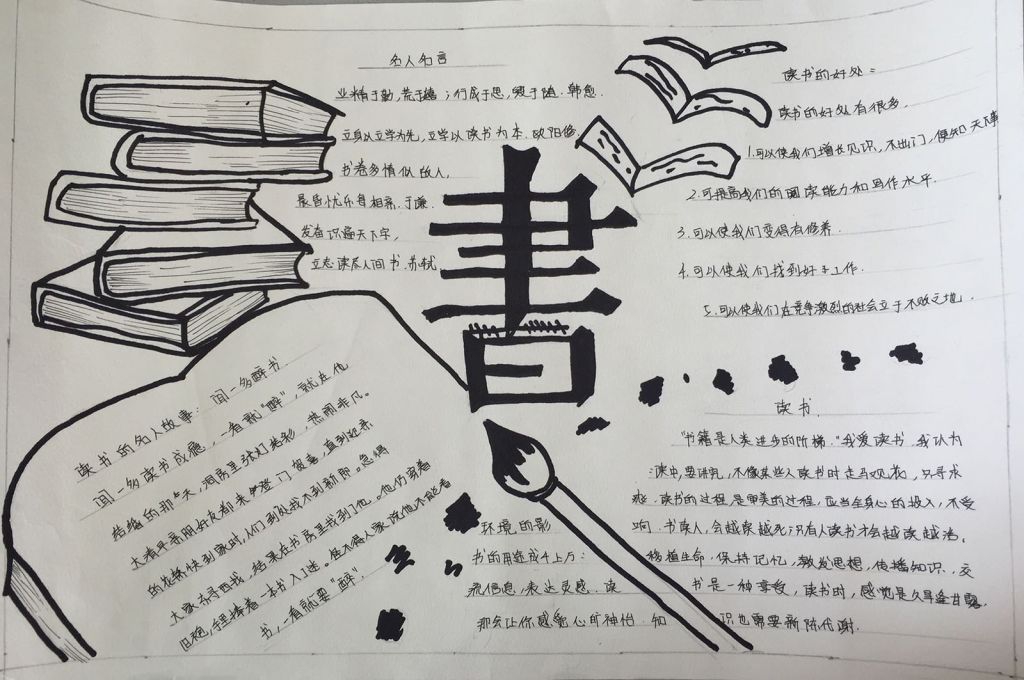 名人名言
业精于勤,荒于嬉;行成于思,毁于随.韩愈.
立身以立学为先,立学以读书为本.欧阳修.
书卷多情似故人,
晨昏忧乐每相亲.于谦.
发奋识遍天下字,
立志读尽人间书.苏轼
書
读书的好处:
读书的好处有很多.
1.可以使我们增长见识,不出门,便知天下事
2.可提高我们的阅读能力和写作水平.
3.可以使我们变得有修养.
4.可以使我们找到好工作.
5.可以使我们在竞争激烈的社会立于不败之地.
读书的名人故事:闻一多醉书.
闻一多读书成瘾,一看就"醉",就在他
结婚的那天,洞房里张灯结彩,热闹非凡。
大清早亲朋好友都来登门贺喜,直到迎亲
的花轿快到家时,人们到处找不到新郎。急得
大家东寻西找,结果在书房里找到了他。他仍穿着
旧袍,手里捧着一本书入了迷。怪不得人家说他不能看
书,一看就要"醉".
读书.
"书籍是人类进步的阶梯."我爱读书.我认为
读中,要讲究,不像某些人读书时走马观花,只寻求
.读书的过程是审美的过程,应当全身心的投入,不受
环境的影响.书读人,会越读越死;只有人读书才会越读越活.
书的用途成千上万:移植生命.保持记忆,激发思想,传播知识.交
流信息,表达灵感.读书是一种享受,读书时,感觉是久旱逢甘露.
那会让你感觉心旷神怡.知识也需要新陈代谢.